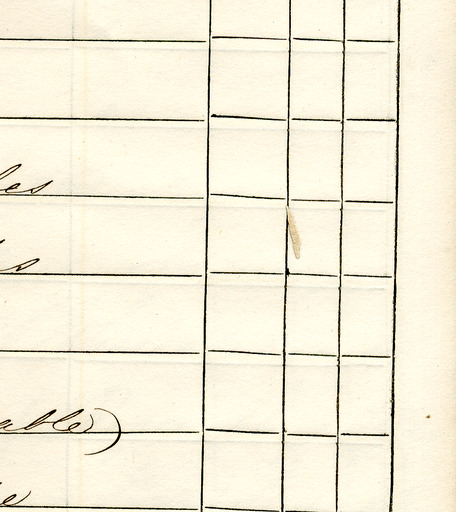 les
s
able)
e